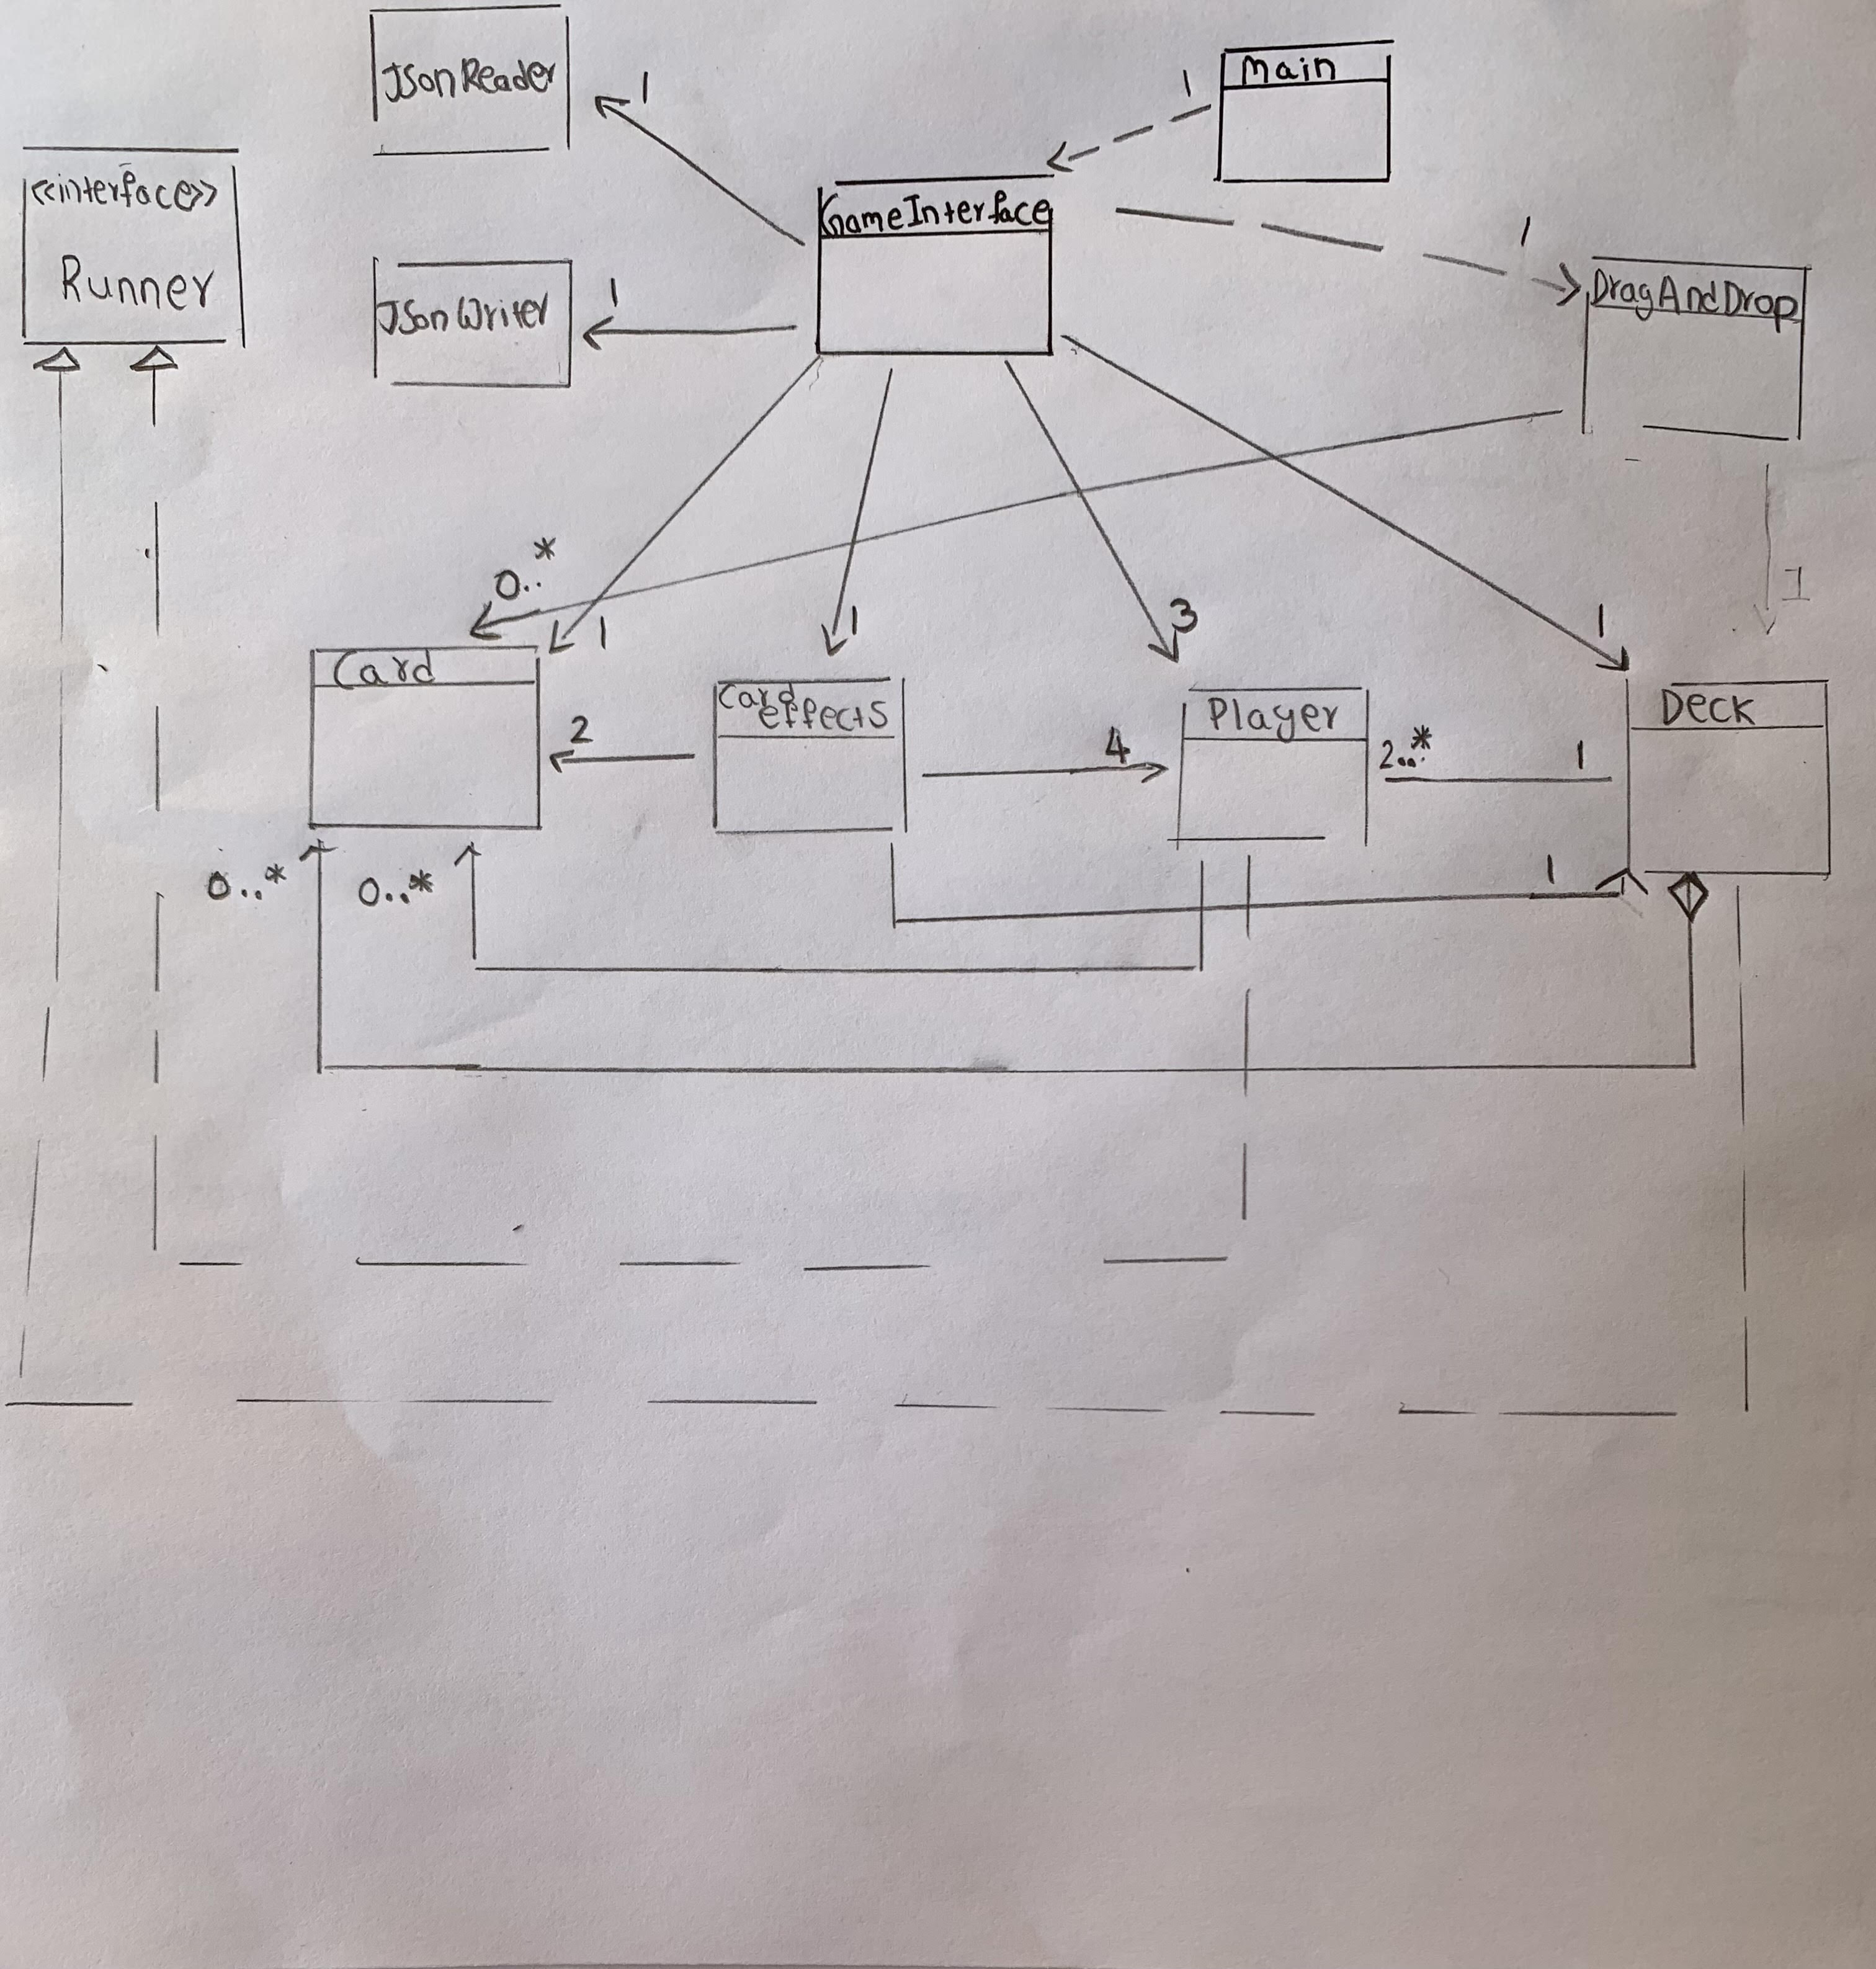 JsonReader
1
1
Main
<<interface>>
Runner
GameInterface
1
JsonWriter
1
DragAndDrop
0..*
1
1
3
1
1
Card
Card
effects
Player
Deck
2
4
2..*
1
0..*
0..*
1